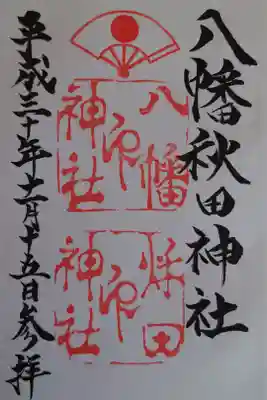 八幡秋田神社
八幡
印
神社
秋田
印
神社
平成三十年十一月十五日参拝